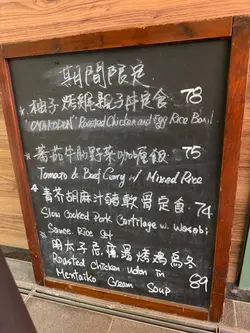 期間限定
*柚子烤雞親子丼定食 78
"OYAKODON" Roasted Chicken and Egg Rice Bowl
*蕃茄牛肋野菜咖喱飯 75
Tomato & Beef Curry w/ Mixed Rice
*青芥胡麻汁豬軟骨定食 74
Slow Cooked Pork Cartilage w. Wasabi
Sauce Rice Set
*明太子忌廉湯烤鴨烏冬
Roasted Chicken Udon in
Mentaiko Cream Soup 89